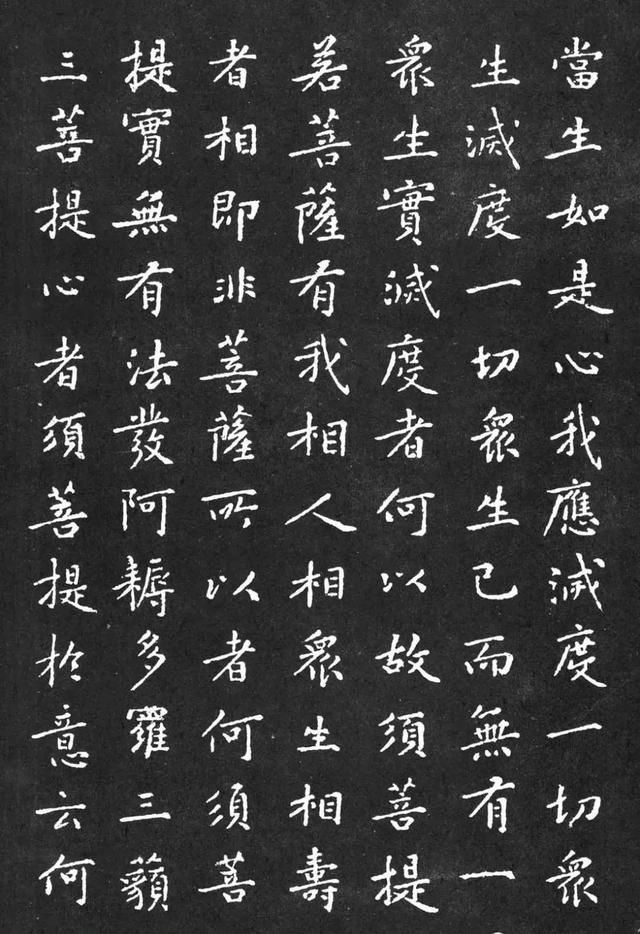 當生如是心我應滅度一切衆
生滅度一切衆生已而無有一
衆生實滅度者何以故須菩提
若菩薩有我相人相衆生相壽
者相即非菩薩所以者何須菩
提實無有法發阿耨多羅三藐
三菩提心者須菩提於意云何